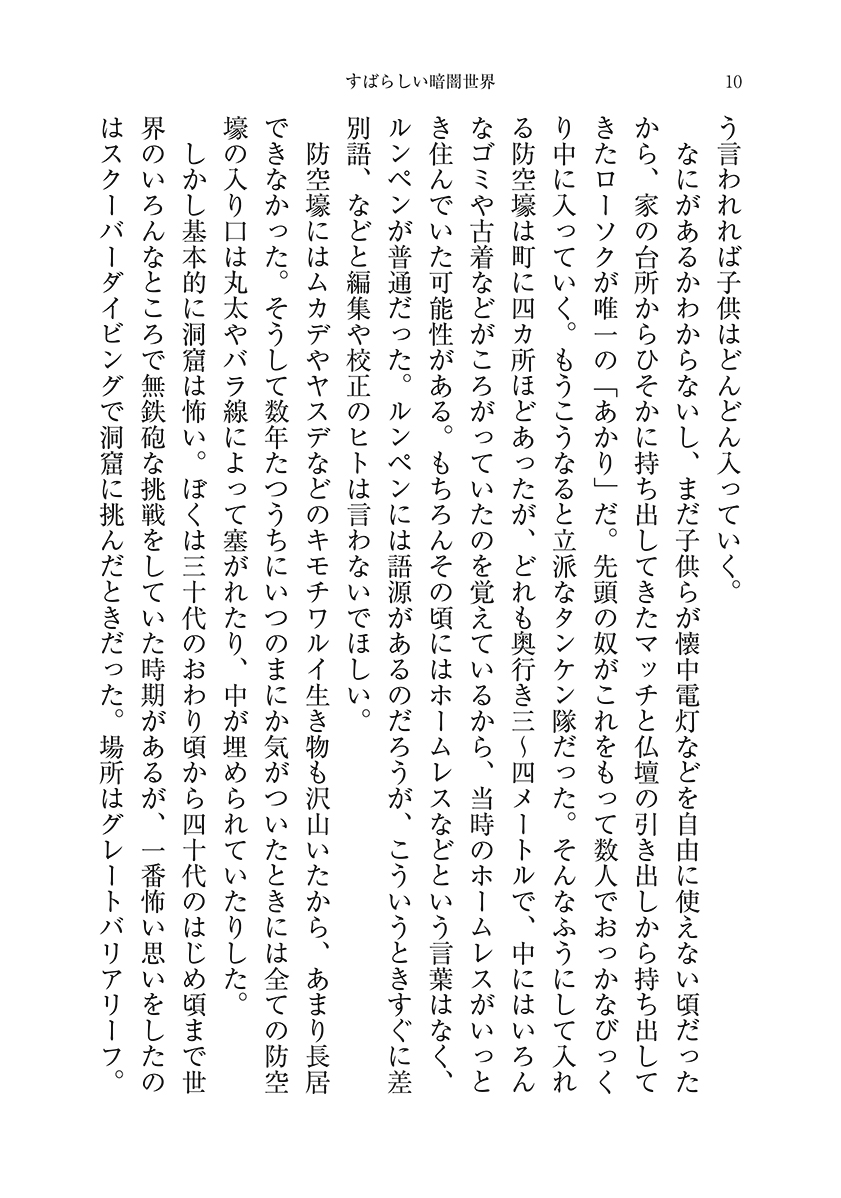 すばらしい暗闇世界
10
う言われれば子供はどんどん入っていく。
なにがあるかわからないし、まだ子供らが懐中電灯などを自由に使えない頃だった
から、家の台所からひそかに持ち出してきたマッチと仏壇の引き出しから持ち出して
きたローソクが唯一の「あかり」だ。先頭の奴がこれをもって数人でおっかなびっく
り中に入っていく。もうこうなると立派なタンケン隊だった。そんなふうにして入れ
る防空壕は町に四カ所ほどあったが、どれも奥行き三〜四メートルで、中にはいろん
なゴミや古着などがころがっていたのを覚えているから、当時のホームレスがいっと
き住んでいた可能性がある。もちろんその頃にはホームレスなどという言葉はなく、
ルンペンが普通だった。ルンペンには語源があるのだろうが、こういうときすぐに差
別語、などと編集や校正のヒトは言わないでほしい。
防空壕にはムカデやヤスデなどのキモチワルイ生き物も沢山いたから、あまり長居
できなかった。そうして数年たつうちにいつのまにか気がついたときには全ての防空
壕の入り口は丸太やバラ線によって塞がれたり、中が埋められていたりした。
しかし基本的に洞窟は怖い。ぼくは三十代のおわり頃から四十代のはじめ頃まで世
界のいろんなところで無鉄砲な挑戦をしていた時期があるが、一番怖い思いをしたの
はスクーバーダイビングで洞窟に挑んだときだった。場所はグレートバリアリーフ。